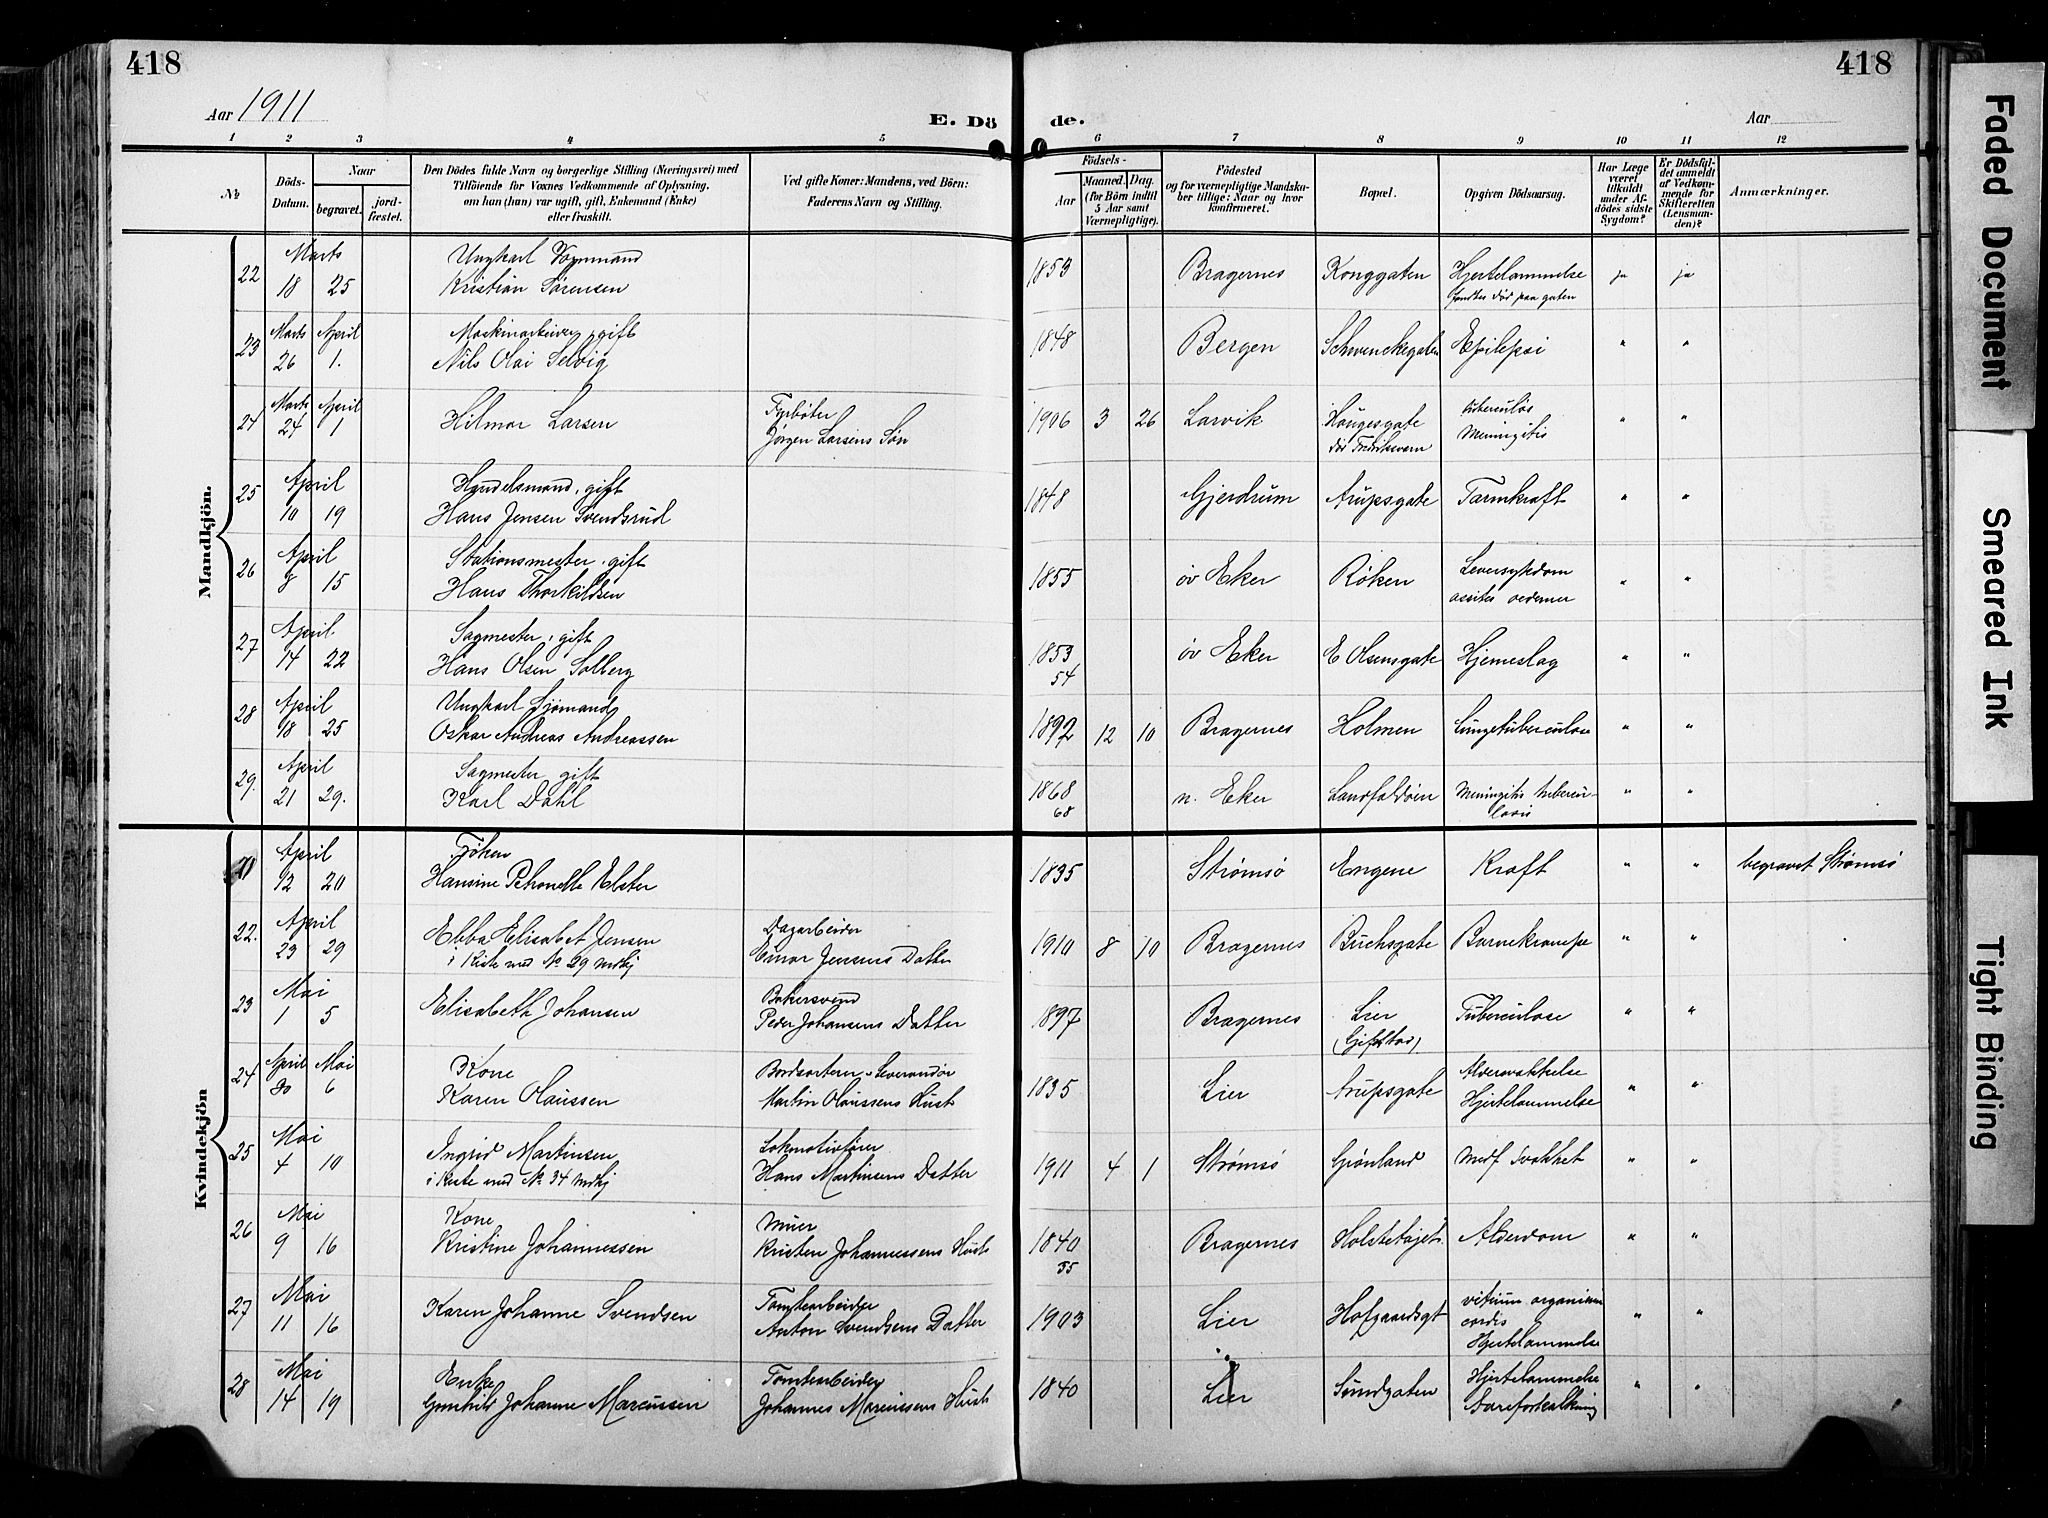 418
418
Aar 1911
E. Dö
de.
Aar
1 2 3 4 5 6 7 8 9 10 11 12
No
Döds-Datum.
Naar
begravet.
jord-fæstet.
Den Dödes fulde Navn og borgerlige Stilling (Næringsvei) med
Tilföiende for Voxnes Vedkommende af Oplysning,
om han (hun) var ugift, gift, Enkemand (Enke)
eller fraskilt.
Ved gifte Koner: Mandens, ved Börn:
Faderens Navn og Stilling.
Födsels-
Aar
Maaned. Dag.
(for Börn indtil
5 Aar samt
Værnepligtige).
Födested
og for værnepligtige Mandska-
ber tillige: Naar og hvor
konfirmeret.
Bopæl.
Opgiven Dödsaarsag.
Har Læge
været
tilkaldt
under Af-
dödes sidste
Sygdom?
Er Dödsfal-
det anmeldt
af Vedkom-
mende for
Skifteretten
(Lensman-
den)?
Anmærkninger.
Mandkjön.
22 Marts 18 25 Ungkarl
Kristian Sørensen 1853 Bragernes Konggaten Hjertelammelse ja ja
fandtes død paa gaten
23 Marts 26 April 1. Maskinarbeider, gift
Nils Olai Selvig 1848 Bergen Schwenckegaten Epilepsi " "
24 Marts 24 April 1 Hilmar Larsen Fyrbøter
Jørgen Larsens Søn 1906 3 26 Larvik Haugesgate tuberculøs
død Fredriksvern Meningitis " "
25 April 10 19 Handelsmand, gift
Hans Jensen Svendsrud 1848 Gjerdrum Arupsgate Tarmkræft " "
26 April 8 15 Stationsmester, gift
Hans Thorkildsen 1855 øv Eker Røken Leversykdom
assites oedemer " "
27 April 14 22 Sagmester, gift
Hans Olsen Solberg 1853 øv Eker E Olsensgate Hjerneslag " "
54
28 April 18 25 Ungkarl Sjømand
Oskar Andreas Andreassen 1892 12 10 Bragernes Holmen Lungetuberculose " "
29. April 21 29. Sagmester gift
Karl Dahl 1868 n. Eker Landfaldøen Meningitis tubercu-
68 losis " "
Kvindekjön
21 April 12 20 Frøken
Hansine Petronelle Elster 1835 Strømsø Engene Kræft " " begravet Strømsø
22. April 23 29 Ebba Elisabet Jensen Dagarbeider
i Kiste med No 29 mdkj Einar Jensens Datter 1910 8 10 Bragernes Buchsgate Barnekrampe " "
23 Mai 1 5 Elisabeth Johansen Bakersvend
Peder Johansens Datter 1897 Bragernes Lier Tuberculose " "
24 April 30 Mai 6 Kone
Karen Olaussen
Martin Olaussens Hust 1835 Lier Arupsgate
Hjertelammelse " "
25 Mai 4 10 Ingrid Martinsen Lokomotivfører
i Kiste med No 34 mdkj Hans Martinsens Datter 1911 4 1 Strømsø Grønland medf Svakhet " "
26 Mai 9 16 Kone Murer
Kristine Johannessen Kristen Johannessens Hust 1840 Bragernes Alderdom " "
55
27 Mai 11 16 Karen Johanne Svendsen Tomtearbeider
Anton Svendsens Datter 1903 Lier Hofgaardsgt vitium organicum
cordis
Hjertelammelse " "
28 Mai 14 19 Enke Tomtearbeider
Gunhild Johanne Marcussen Johannes Marcussens Hust 1840 Lier Sundgaten Hjertelammelse
Aareforkalkning " "
Faded Document
Smeared Ink
Tight Binding